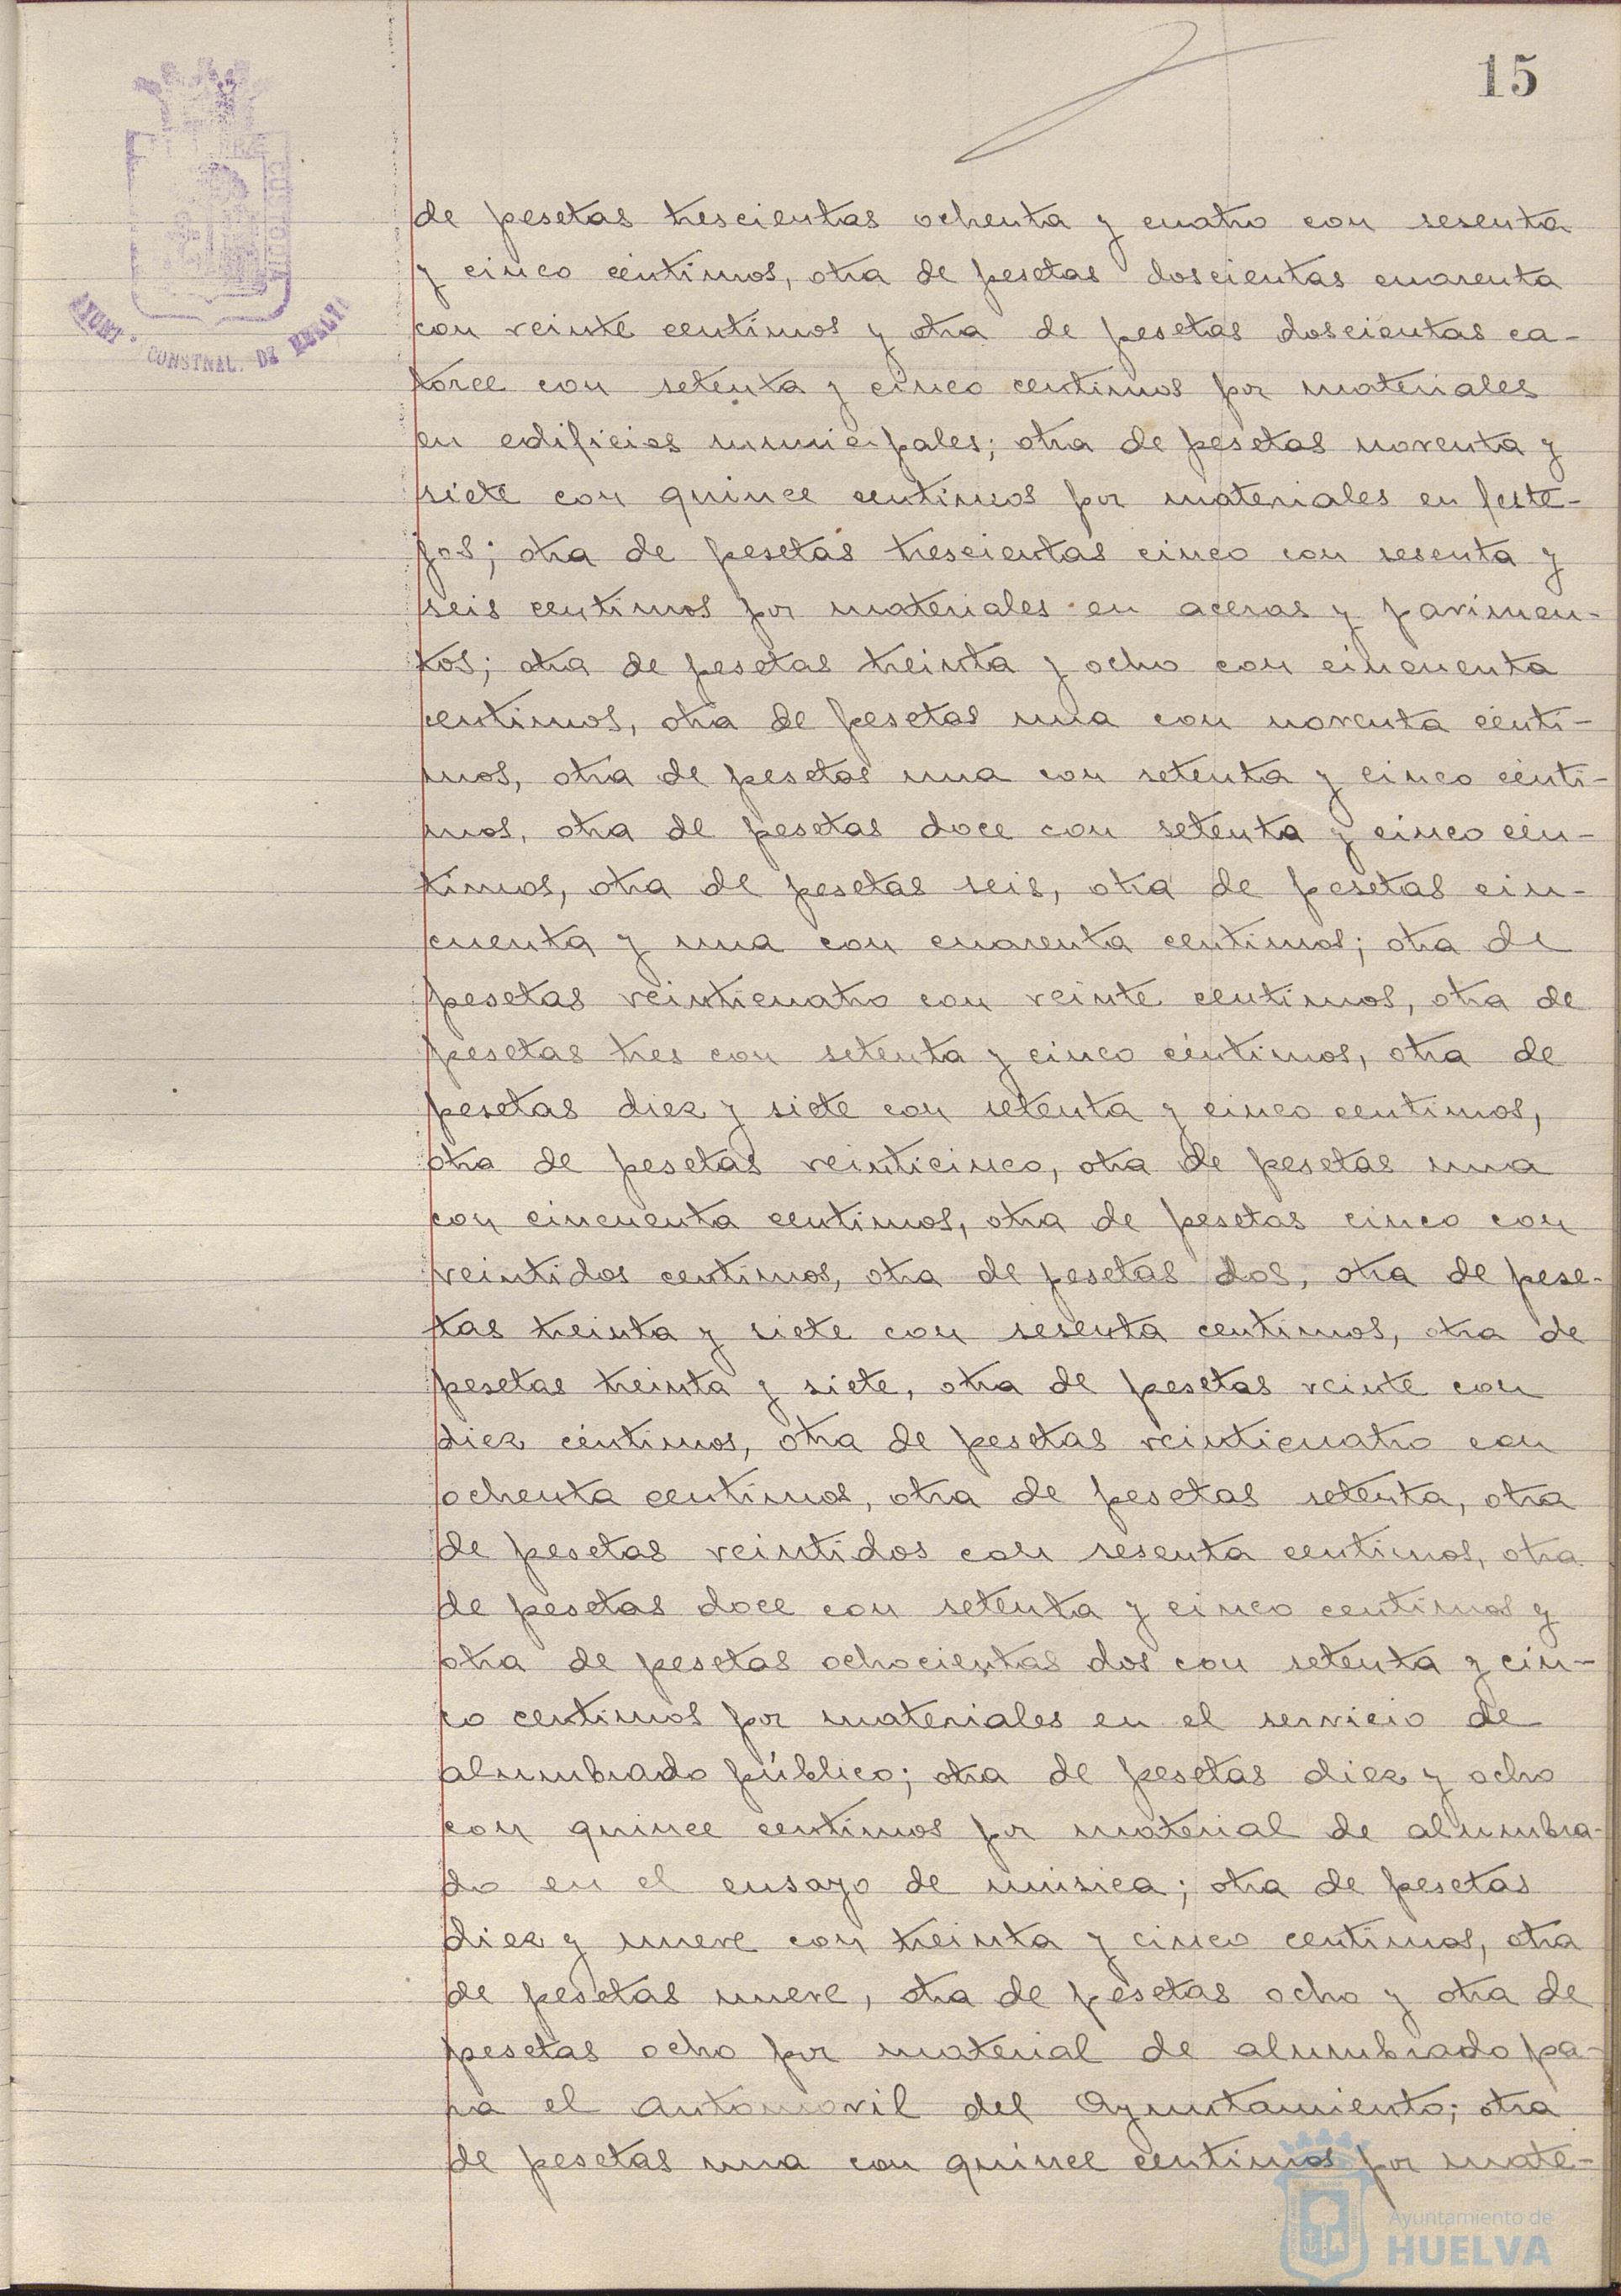 15
AYUNT. CONSTNAL. DE HUELVA
de pesetas trescientas ochenta y cuatro con sesenta
y cinco céntimos, otra de pesetas doscientas cuarenta
con veinte centimos y otra de pesetas doscientas ca-
torce con setenta y cinco centimos por materiales
en edificios municipales; otra de pesetas noventa y
siete con quince centimos por materiales en feste-
jos; otra de pesetas trescientas cinco con sesenta y
seis centimos por materiales en aceras y pavimen-
tos; otra de pesetas treinta y ocho con cincuenta
centimos, otra de pesetas una con noventa cénti-
mos, otra de pesetas una con setenta y cinco cénti-
mos, otra de pesetas doce con setenta y cinco cén-
timos, otra de pesetas seis, otra de pesetas cin-
cuenta y una con cuarenta centimos; otra de
pesetas veinticuatro con veinte centimos, otra de
pesetas tres con setenta y cinco céntimos, otra de
pesetas diez y siete con setenta y cinco centimos,
otra de pesetas veinticinco, otra de pesetas una
con cincuenta centimos, otra de pesetas cinco con
veintidos centimos, otra de pesetas dos, otra de pese-
tas treinta y siete con sesenta centimos, otra de
pesetas treinta y siete, otra de pesetas veinte con
diez céntimos, otra de pesetas veinticuatro con
ochenta centimos, otra de pesetas setenta, otra
de pesetas veintidos con sesenta centimos, otra
de pesetas doce con setenta y cinco centimos y
otra de pesetas ochocientas dos con setenta y cin-
co centimos por materiales en el servicio de
alumbrado público; otra de pesetas diez y ocho
con quince centimos por material de alumbra-
do en el ensayo de música; otra de pesetas
diez y nueve con treinta y cinco centimos, otra
de pesetas nueve, otra de pesetas ocho y otra de
pesetas ocho por material de alumbrado pa-
ra el automovil del Ayuntamiento; otra
de pesetas una con quince centimos por mate-
Ayuntamiento de
HUELVA